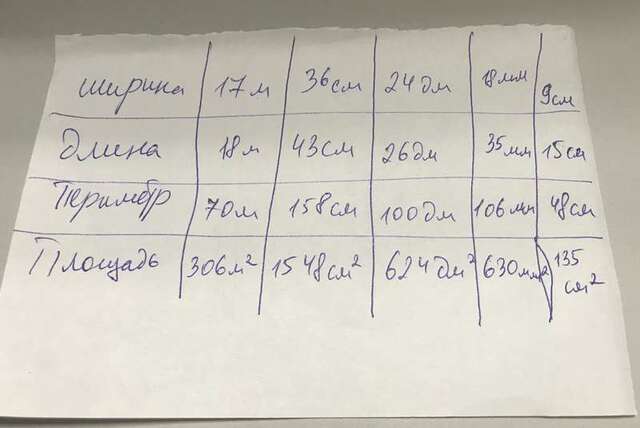 ширина 17м 36см 24дм 18мм 9см
Длина 18м 43см 26дм 35мм 15см
Перимтр 70м 158см 100дм 106мм 48см
Площадь 306м² 1548см² 624дм² 630мм² 135 см²